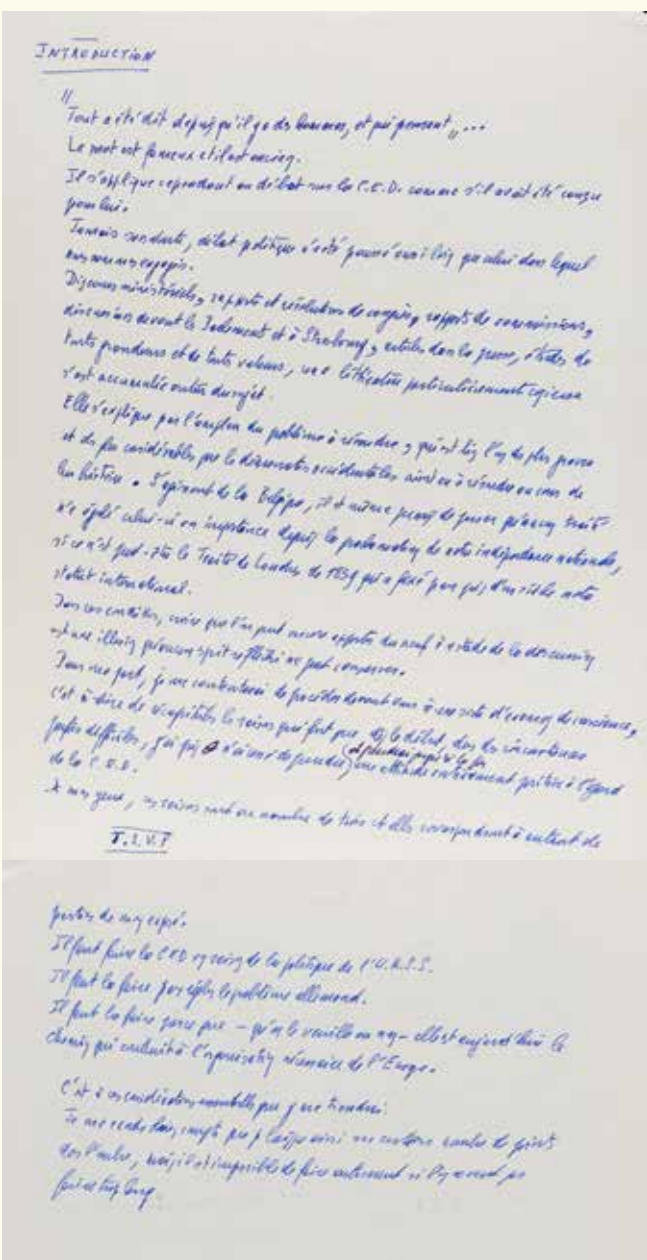 INTRODUCTION
"
Tout a été dit depuis qu'il y a des hommes, et qui pensent" ...
Le mot est fameux et il est ancien.
Il s'applique cependant au débat sur la C.E.D. comme s'il avait été conçu
pour lui.
Jamais sans doute, débat politique n'a été poussé aussi loin que celui dans lequel
nous sommes engagés.
Discours ministériels, rapports et résolutions de congrès, rapports de commissions,
discussions devant le Parlement et à Strasbourg, articles dans la presse, études de
toutes grandeurs et de toutes valeurs, une littérature particulièrement copieuse
s'est accumulée autour du sujet.
Elle s'explique par l'ampleur du problème à résoudre, qui est bien l'un des plus graves
et des plus considérables que les démocraties occidentales aient eu à résoudre au cours de
leur histoire. S'agissant de la Belgique, il est même permis de penser qu'aucun traité
n'a égalé celui-ci en importance depuis la proclamation de notre indépendance nationale,
si ce n'est peut-être le Traité de Londres de 1839 qui a fixé pour plus d'un siècle notre
statut international.
Dans ces conditions, croire que l'on peut encore apporter du neuf à ce stade de la discussion
est une illusion qu'aucun esprit réfléchi ne peut conserver.
Pour ma part, je me contenterai de procéder devant vous à une sorte d'examen de conscience,
c'est à dire de récapituler les raisons qui font que, dès le début, dans des circonstances
parfois difficiles, j'ai pris
une attitude entièrement positive à l'égard
de la C.E.D.
A mes yeux, ces raisons sont au nombre de trois et elles correspondent à autant de
T.S.V.P
parties de mon exposé.
Il faut faire la CED en raison de la politique de l'U.R.S.S.
Il faut la faire pour régler le problème allemand.
Il faut la faire parce que – qu'on le veuille ou non – elle est aujourd'hui le
chemin qui conduit à l'organisation nécessaire de l'Europe.
C'est à ces considérations essentielles que je me tiendrai.
Je me rends bien compte que je laisse ainsi un certain nombre de points
dans l'ombre, mais il est impossible de faire autrement si l'on ne veut pas
faire trop long